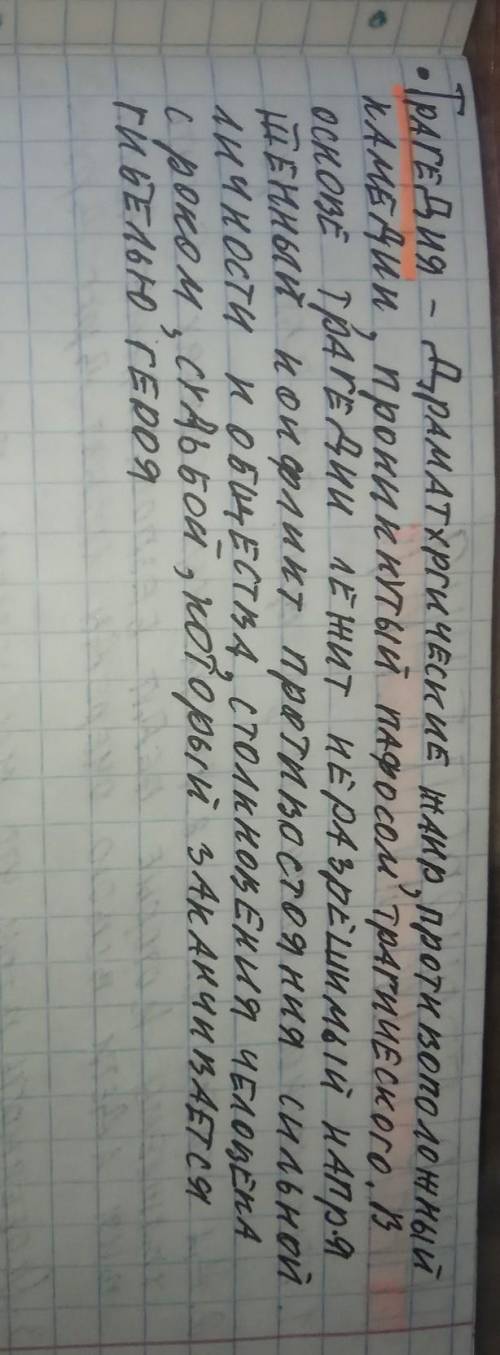 • Трагедия – Драматургические жанр, противоположный
камедии, проникнутый пафосом, трагического. В
основе трагедии лежит неразрешимый напря
щенный конфликт пративостояния сильной
личности и общества, столкновения человека
с роком, судьбой, который заканчивается
гибелью героя